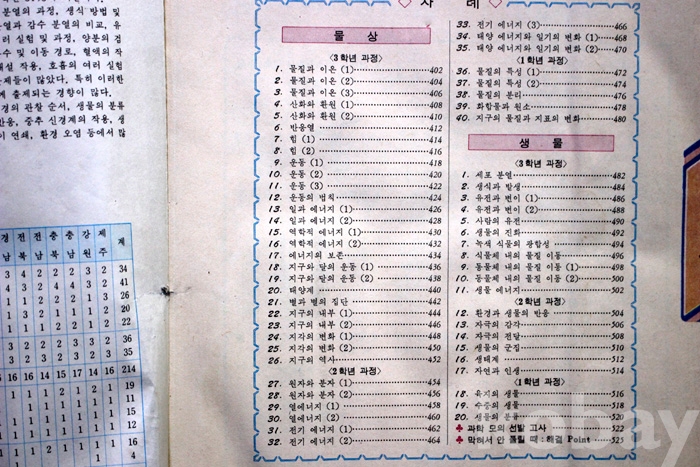 분열의 과정, 생식 방법 및
분열과 감수 분열의 비교, 유
실험 및 과정, 양분의 검
수 및 이동 경로, 혈액의 작
작용, 호흡의 여러 실험
문제들이 많았다. 특히 이러한
에 출제되는 경향이 많다.
경의 관찰 순서, 생물의 분류
반응, 중추 신경계의 작용, 생
연쇄, 환경 오염 등에서 많
경 전 전 충 충 강 제 계
남 북 남 북 남 원 주
3 4 2 2 2 3 2 34
4 4 2 2 3 3 2 41
26
20
22
36
35
16 16 14 15 17 14 16 214
19
28
28
16
4
차 례
물 상
<3학년 과정>
1. 물질과 이온 (1) 402
2. 물질과 이온 (2) 404
3. 물질과 이온 (3) 406
4. 산화와 환원 (1) 408
5. 산화와 환원 (2) 410
6. 반응열 412
7. 힘 (1) 414
8. 힘 (2) 416
9. 운동 (1) 418
10. 운동 (2) 420
11. 운동 (3) 422
12. 운동의 법칙 424
13. 일과 에너지 (1) 426
14. 일과 에너지 (2) 428
15. 역학적 에너지 (1) 430
16. 역학적 에너지 (2) 432
17. 에너지의 보존 434
18. 지구와 달의 운동 (1) 436
19. 지구와 달의 운동 (2) 438
20. 태양계 440
21. 별과 별의 집단 442
22. 지구의 내부 (1) 444
23. 지구의 내부 (2) 446
24. 지각의 변화 (1) 448
25. 지각의 변화 (2) 450
26. 지구의 역사 452
<2학년 과정>
27. 원자와 분자 (1) 454
28. 원자와 분자 (2) 456
29. 열에너지 (1) 458
30. 열에너지 (2) 460
31. 전기 에너지 (1) 462
32. 전기 에너지 (2) 464
33. 전기 에너지 (3) 466
34. 태양 에너지와 일기의 변화 (1) 468
35. 태양 에너지와 일기의 변화 (2) 470
<1학년 과정>
36. 물질의 특성 (1) 472
37. 물질의 특성 (2) 474
38. 물질의 분리 476
39. 화합물과 원소 478
40. 지구의 물질과 지표의 변화 480
생 물
<3학년 과정>
1. 세포 분열 482
2. 생식과 발생 484
3. 유전과 변이 (1) 486
4. 유전과 변이 (2) 488
5. 사람의 유전 490
6. 생물의 진화 492
7. 녹색 식물의 광합성 494
8. 식물체 내의 물질 이동 496
9. 동물체 내의 물질 이동 (1) 498
10. 동물체 내의 물질 이동 (2) 500
11. 생물 에너지 502
<2학년 과정>
12. 환경과 생물의 반응 504
13. 자극의 감각 506
14. 자극의 전달 508
15. 생물의 군집 510
16. 생태계 512
17. 자연과 인생 514
<1학년 과정>
18. 육지의 생물 516
19. 수중의 생물 518
20. 생물의 분류
♣ 과학 모의 선발 고사 522
♣ 막혀서 안 풀릴 때:해결 Point 525
obay